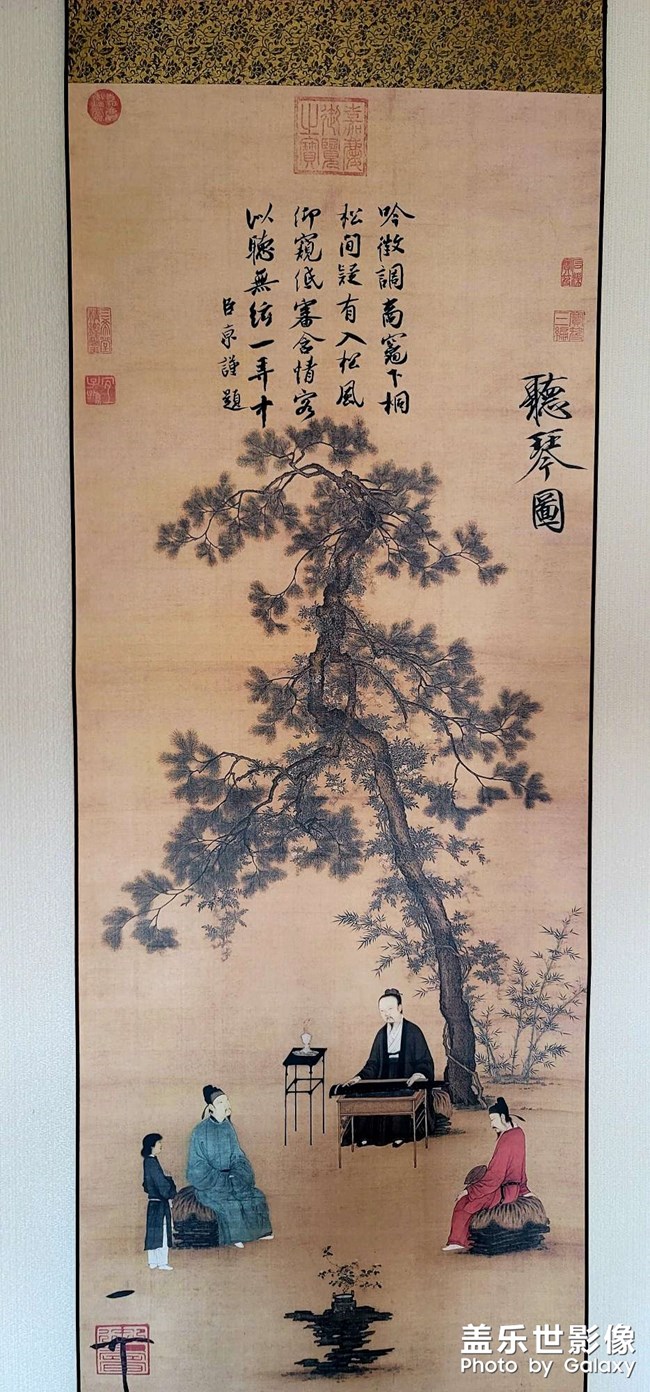 嘉慶御覽之寶
聽琴圖
吟徵調商竈下桐
松間疑有入松風
仰窺低審含情客
似聽無絃一弄中
臣京謹題
三希堂精鑑璽
宜子孫
盖乐世影像
Photo by Galaxy